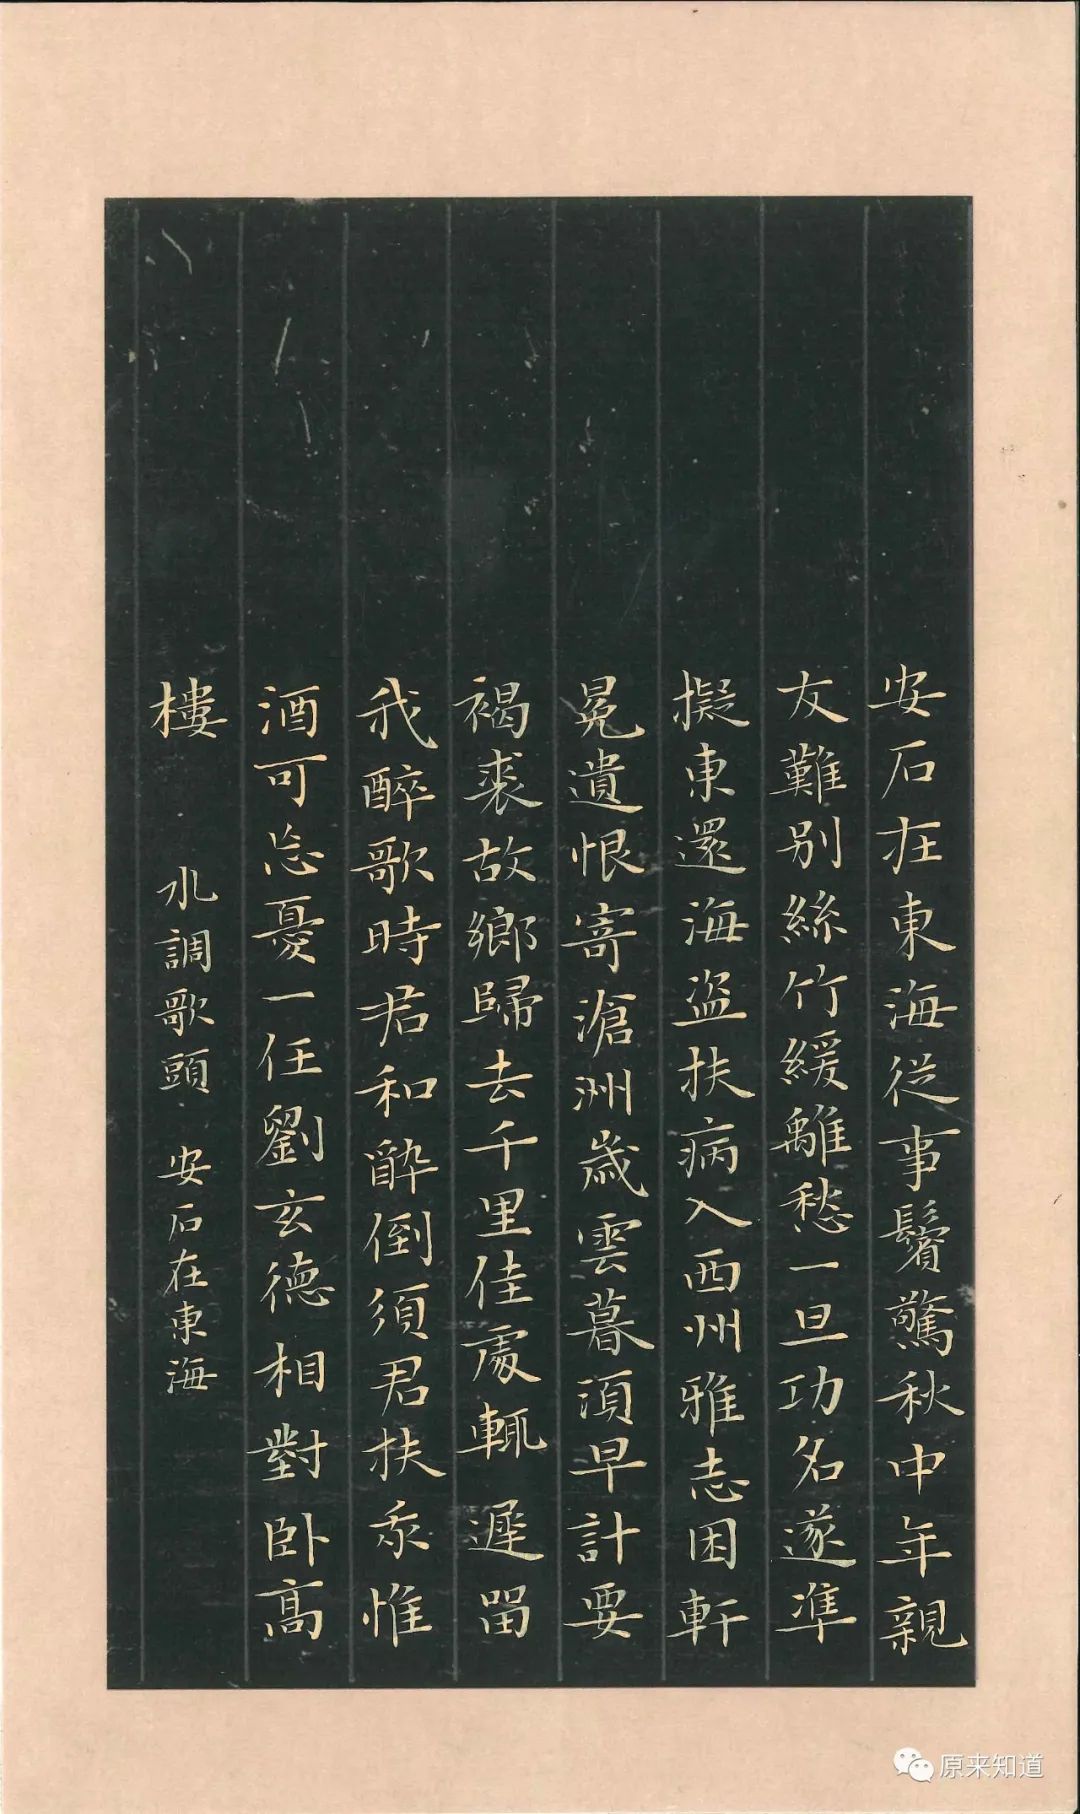 安石在東海從事鬢驚秋中年親
友難別絲竹緩離愁一旦功名遂準
擬東還海盜扶病入西州雅志困軒
冕遺恨寄滄洲歲雲暮須早計要
褐裘故鄉歸去千里佳處輒遲留
我醉歌時君和醉倒須君扶我惟
酒可忘憂一任劉玄德相對卧高
樓 水調歌頭 安石在東海
原来知道